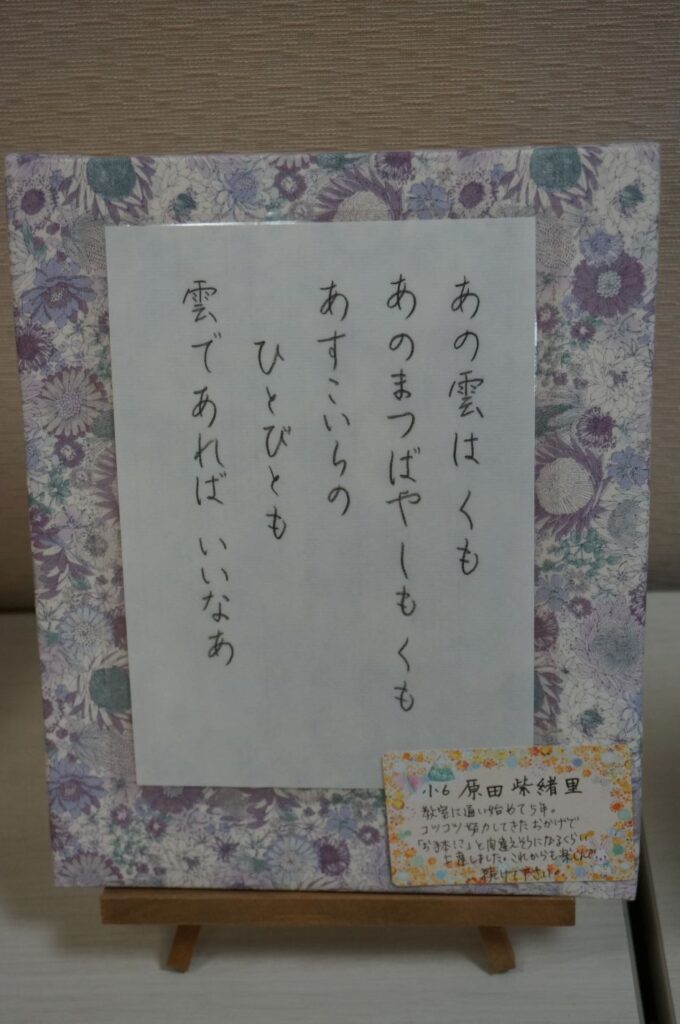 あの雲は くも
あのまつばやしも くも
あすこいらの
ひとびとも
雲であれば いいなあ
小6 原田 柴緒里
教室に通い始めて5年。
コツコツ努力してきたおかげで
「お手本!?」と間違えそうになるくらい
上達しました。これからも楽しんで…
続けて下さい。